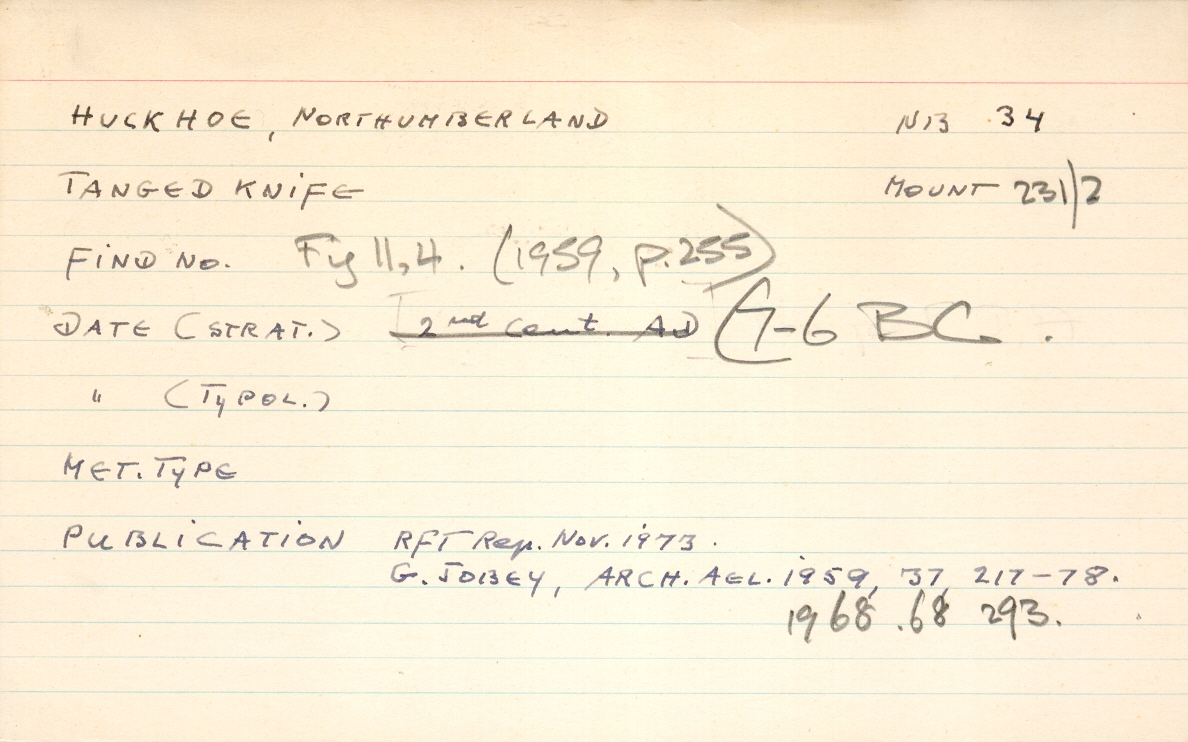 HUCKHOE, NORTHUMBERLAND NB 34
TANGED KNIFE MOUNT 231/2
FIND NO. Fig 11,4. (1959, p.255)
DATE (STRAT.) [2nd Cent. AD] (7-6 BC.
" (TYPOL.)
MET. TYPE
PUBLICATION RFT Rep. Nov. 1973.
G. JOBEY, ARCH. AEL. 1959, 37, 217-78.
1968 .68 293.